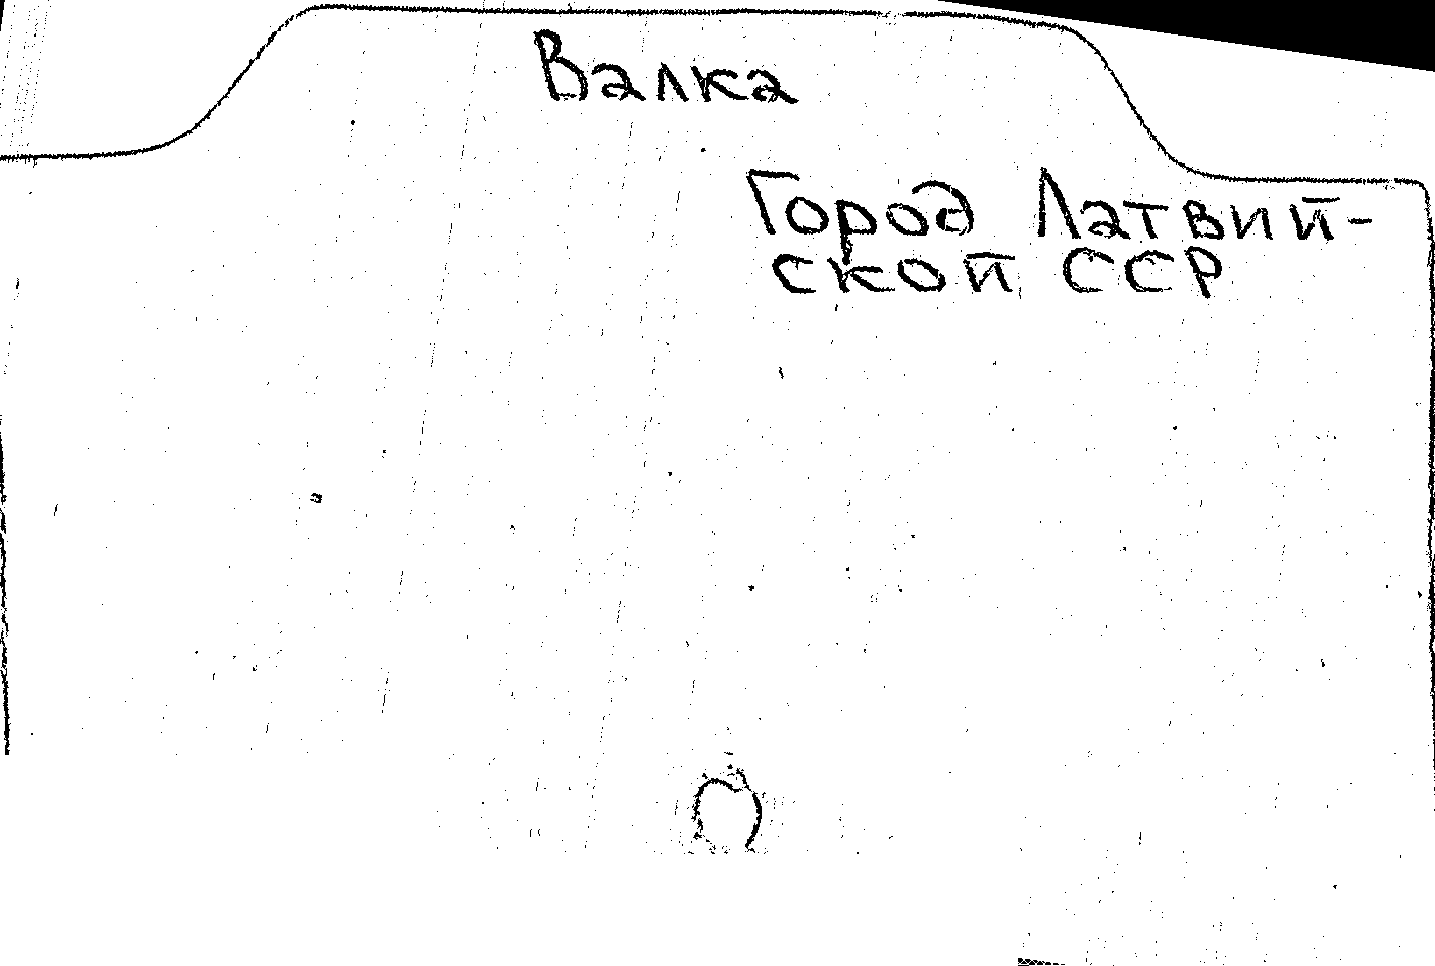 Валка
Город Латвий-
ской ССР